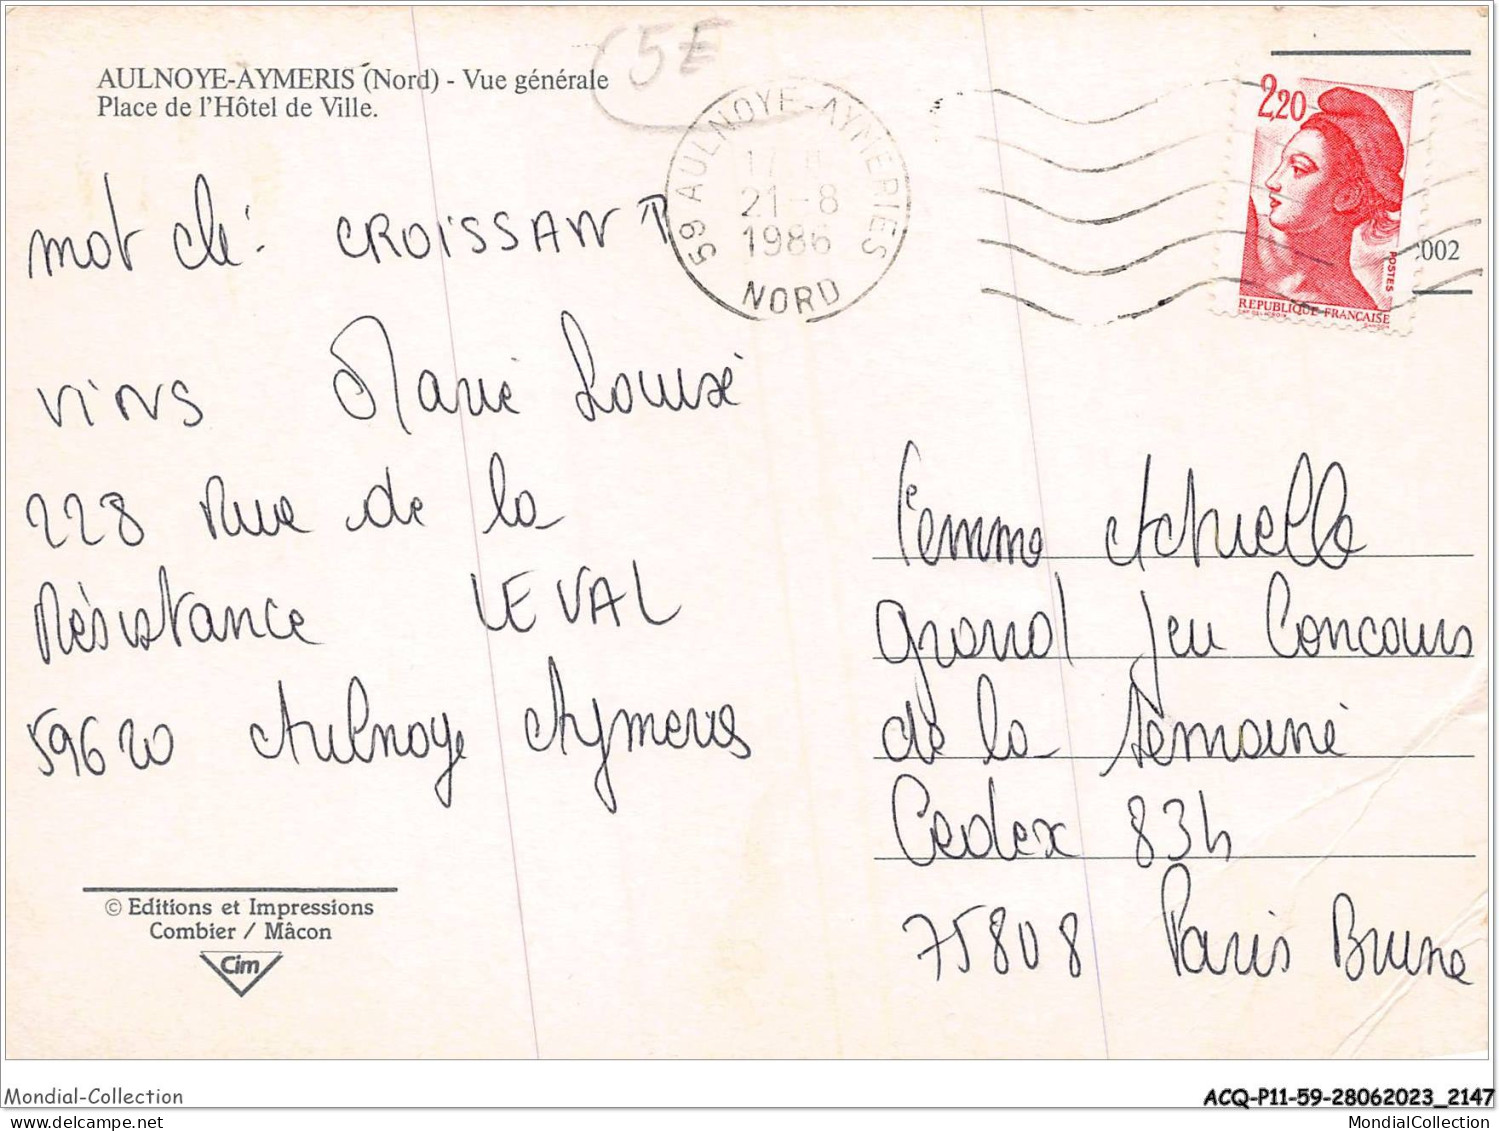 5E
AULNOYE-AYMERIS (Nord) - Vue générale
Place de l'Hôtel de Ville.
59 AULNOYE-AYMERIES
21-8
1986
NORD
2,20
POSTES
REPUBLIQUE FRANCAISE
002
mot clé : CROISSANT
VINS Marie Louise
228 Rue de la
Résistance LEVAL
59620 Aulnoye Aymeries
Femme Actuelle
grand Jeu Concours
de la Semaine
Cedex 83h
75808 Paris Brune
© Editions et Impressions
Combier / Mâcon
Cim
Mondial-Collection
ACQ-P11-59-28062023_2147
www.delcampe.net
MondialCollection